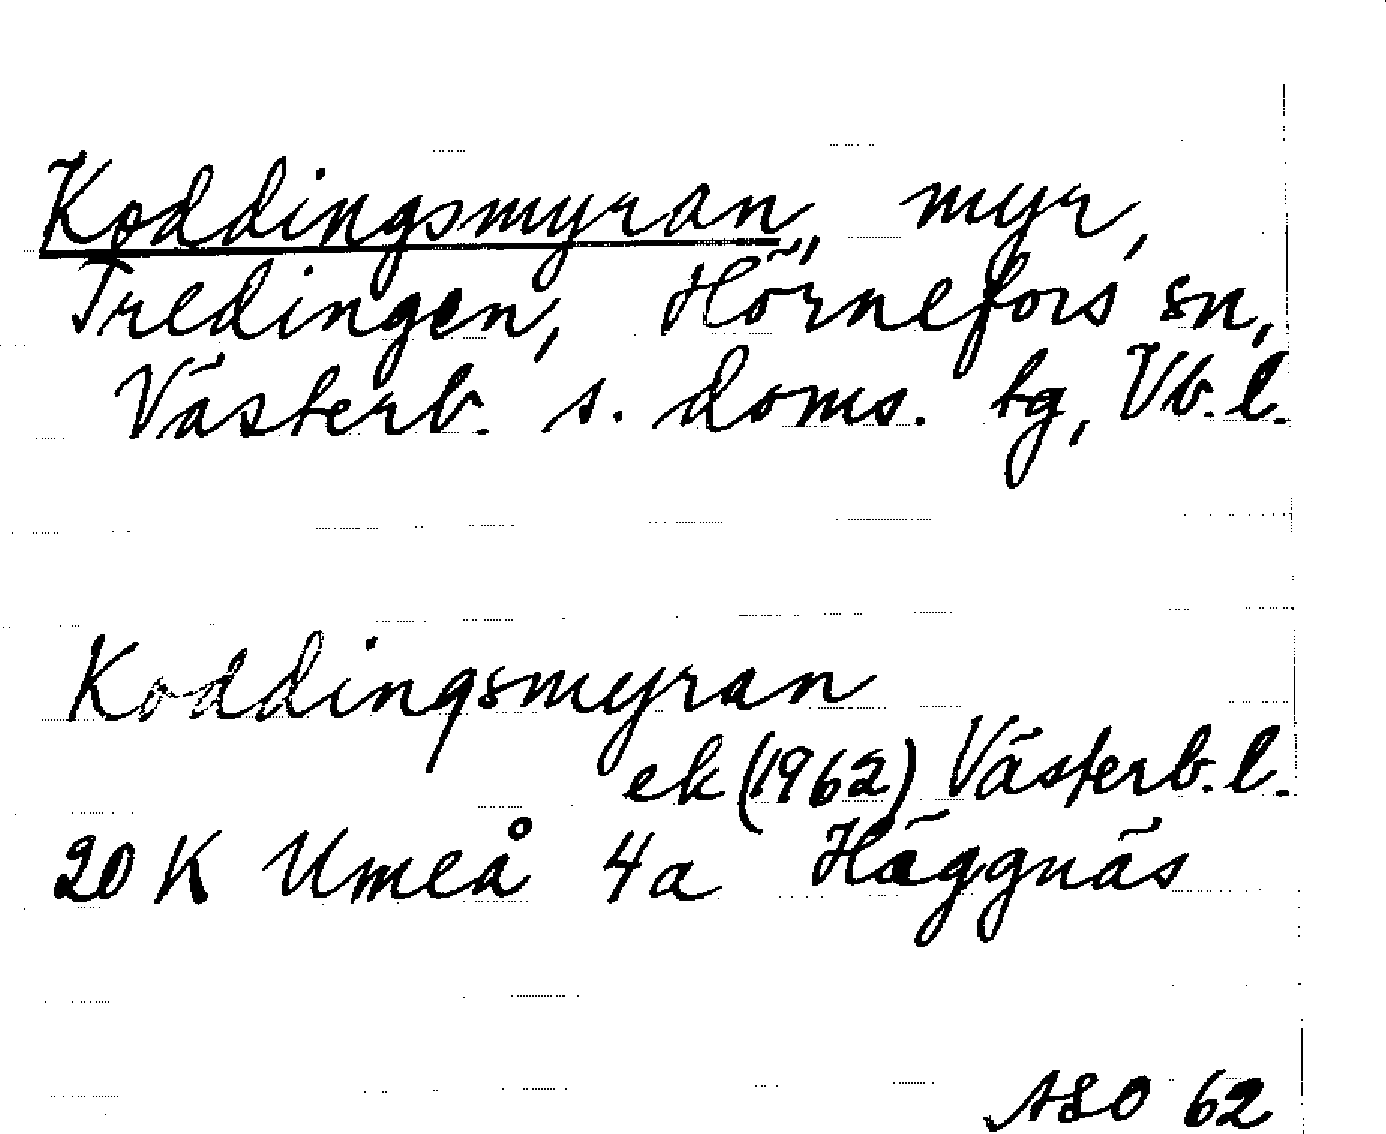 Koddingsmyran, myr,
Tredingen, Hörnefors sn,
Västerb. s. doms. tg, Vb. l.
Koddingsmyran
ek (1962) Västerb. l.
20 K Umeå 4a Häggnäs
ASO 62